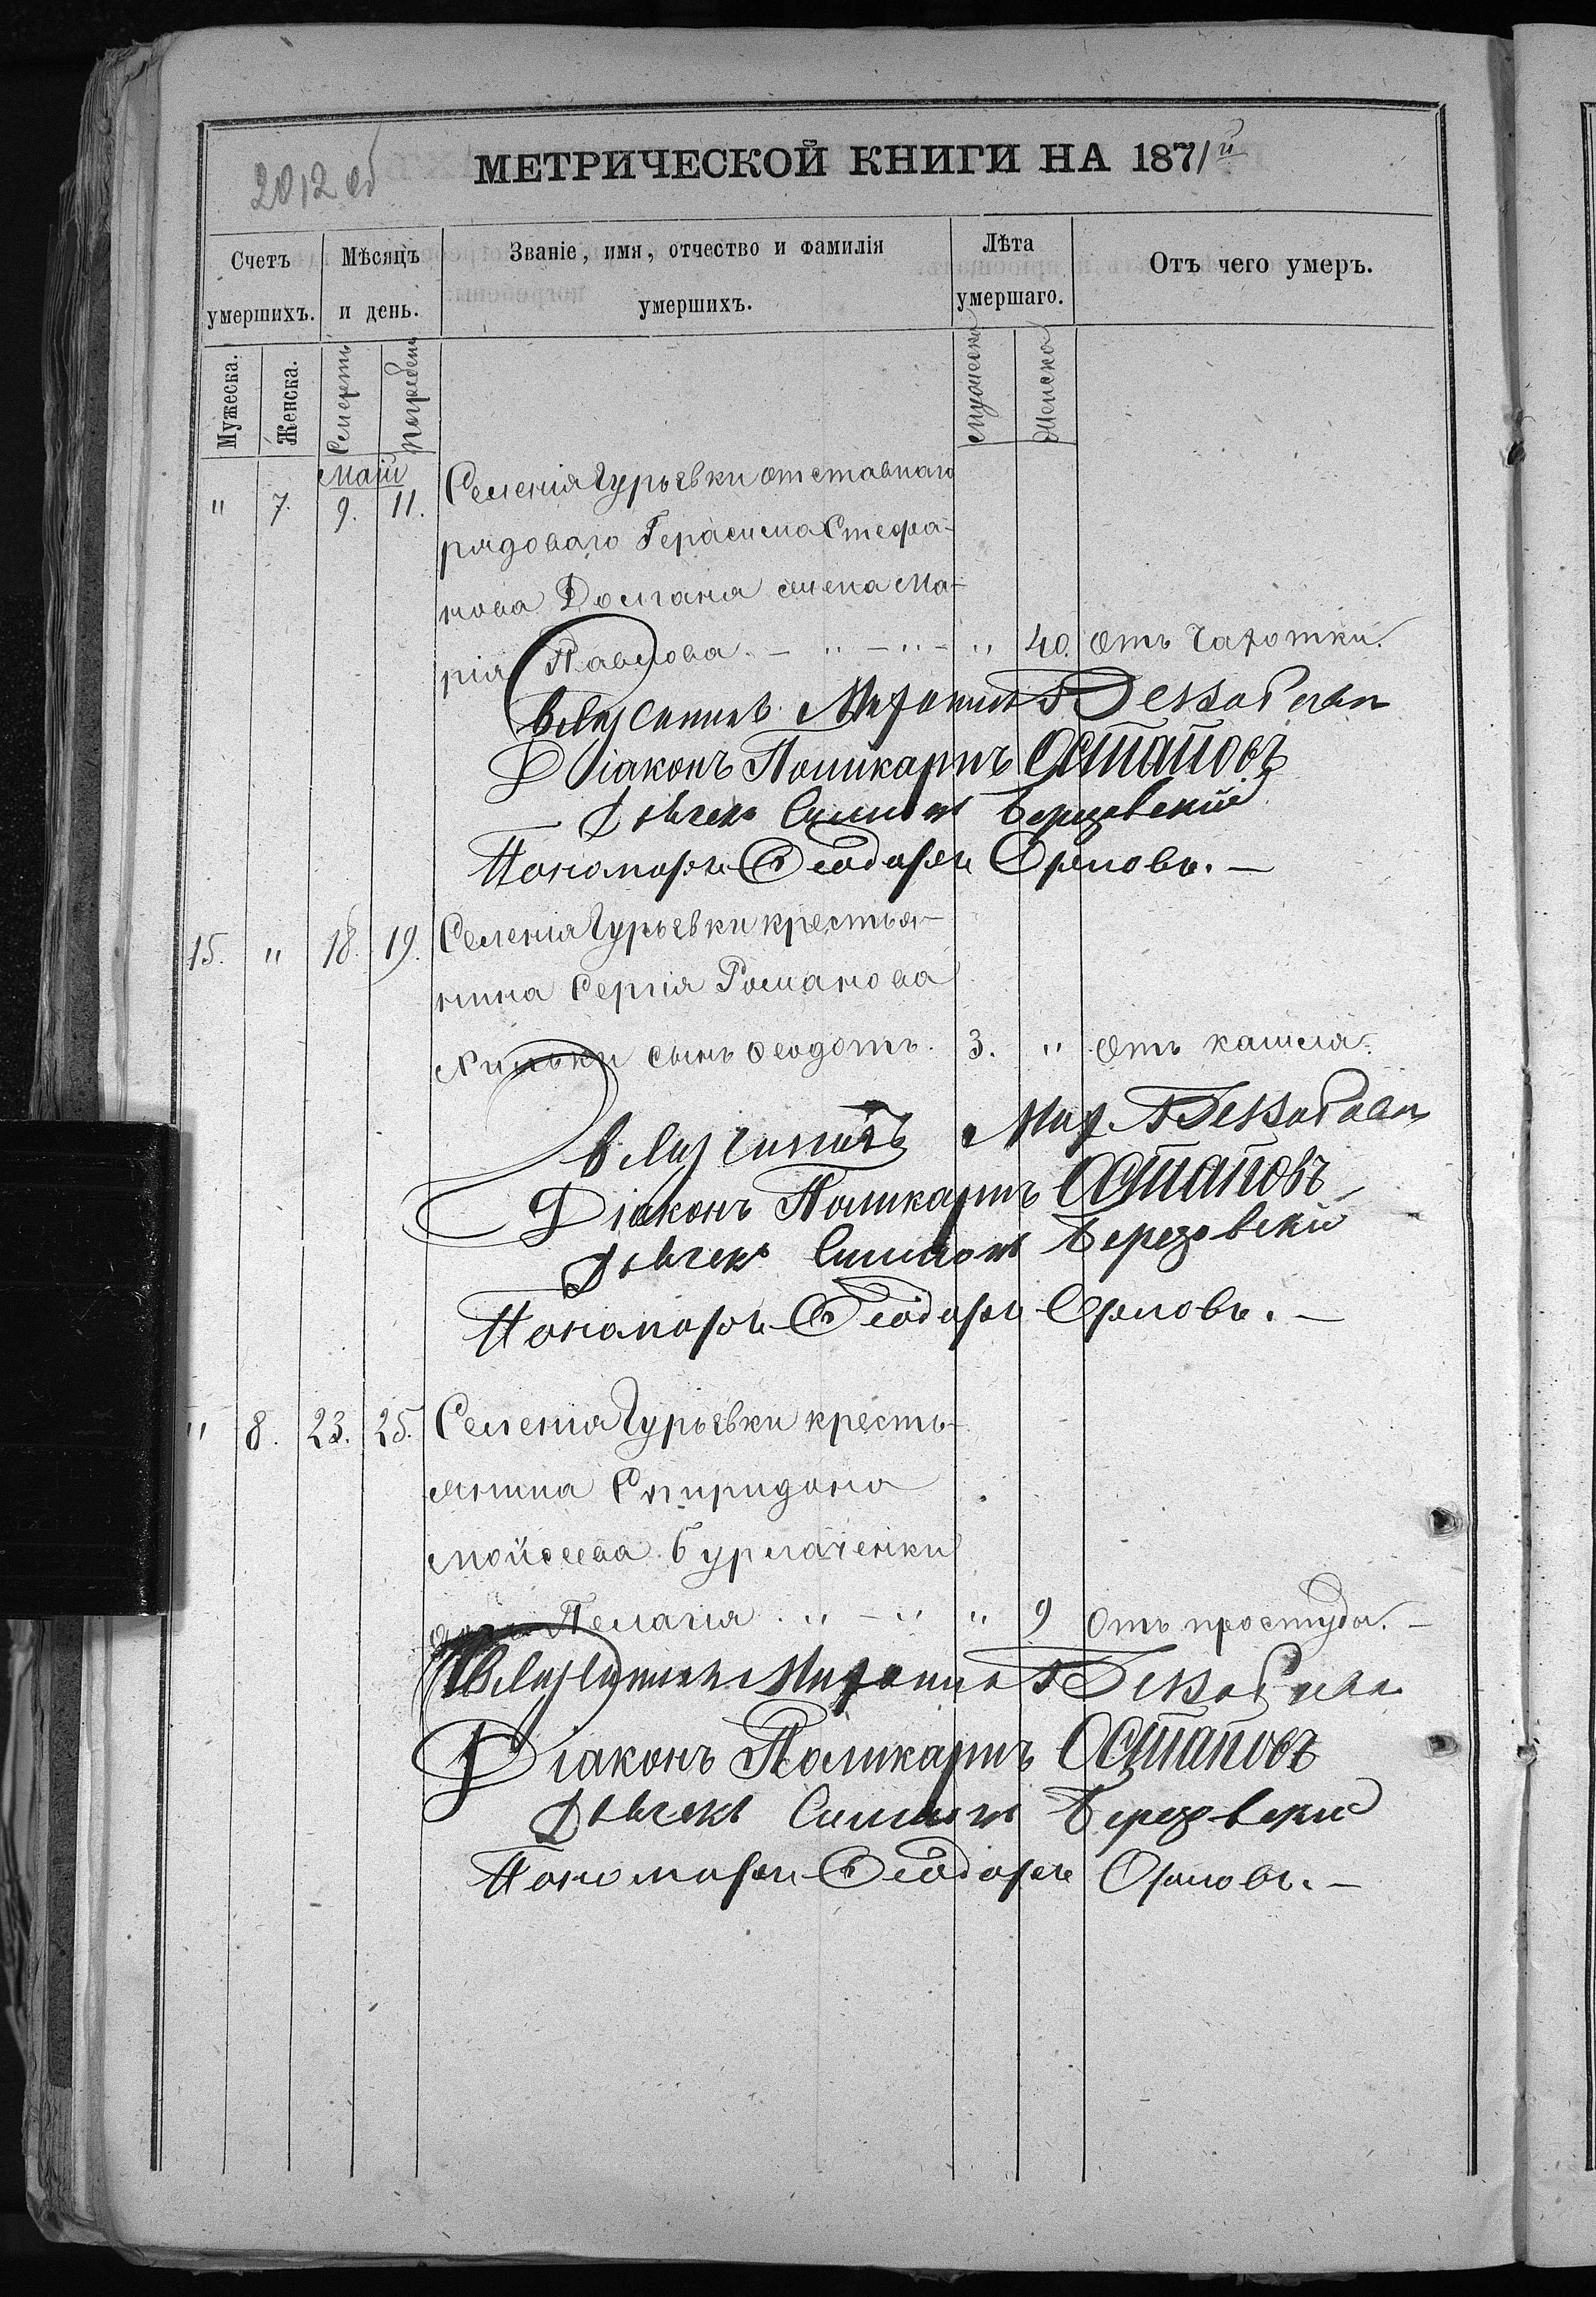 2012 об
МЕТРИЧЕСКОЙ КНИГИ НА 1871й
Счетъ умершихъ.
Мѣсяцъ и день.
Званіе, имя, отчество и фамилія умершихъ.
Лѣта умершаго.
Отъ чего умеръ.
Мужеска. Женска. Смерть Погребен Мужеска Женска
Маій
" 7. 9. 11. Селенія Гурьевки отставнаго
рядоваго Герасима Стефа-
нова Долгана жена Ма-
рія Павлова. - " - " - " 40. Отъ Чахотки.
Митрофанъ
Діаконъ Поликарпъ Остаповъ
Дьячекъ Симеон Березовскій
Пономарь Ѳеодоръ Орловъ. —
15. " 18. 19. Селенія Гурьевки крестья-
нина Сергія Романова
сынъ Ѳеодотъ. 3. " Отъ кашля.
Діаконъ Поликарпъ Остаповъ
Дьячекъ Симеон Березовскій
Пономарь Ѳеодоръ Орловъ. —
" 8. 23. 25. Селенія Гурьевки кресть-
янина Спиридона
Мойсеева Бурлаченки
дочь Пелагія . " - " " 9 Отъ простуды. —
Діаконъ Поликарпъ Остаповъ
Дьячекъ Симеон Березовскій
Пономарь Ѳеодоръ Орловъ. —